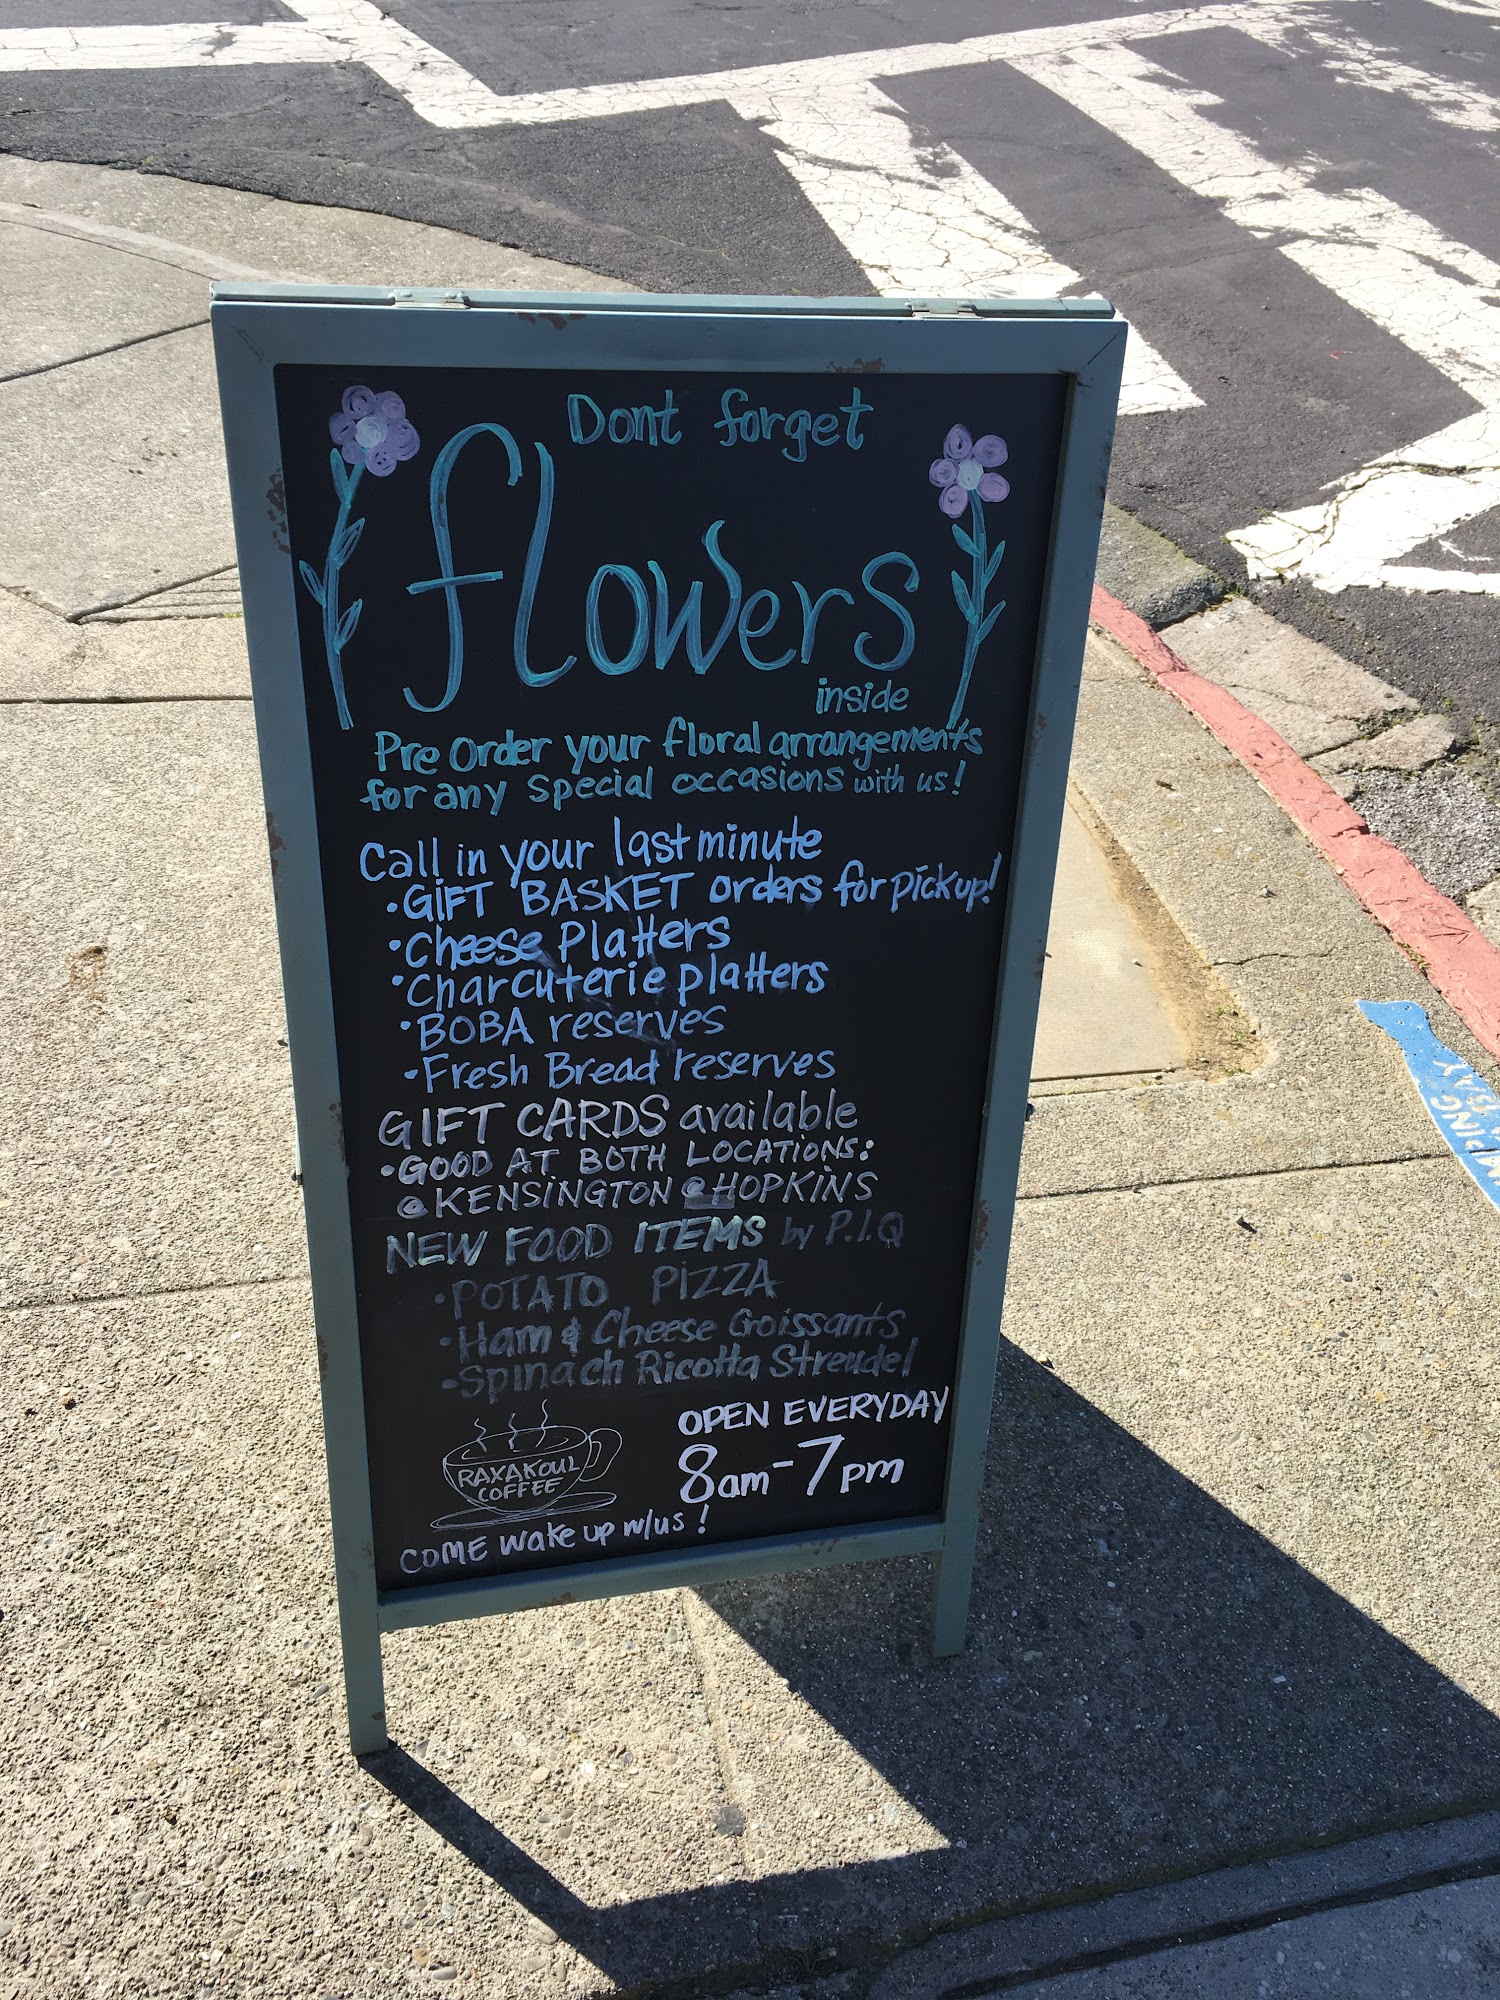 Dont forget
flowers
inside
Pre Order your floral arrangements
for any special occasions with us!
Call in your last minute
• GIFT BASKET orders for pickup!
• Cheese Platters
• Charcuterie platters
• BOBA reserves
• Fresh Bread reserves
GIFT CARDS available
• GOOD AT BOTH LOCATIONS:
@ KENSINGTON @ HOPKINS
NEW FOOD ITEMS by P.I.Q
• POTATO PIZZA
• Ham & Cheese Croissants
• Spinach Ricotta Streudel
OPEN EVERYDAY
8am - 7pm
RAXAKOUL
COFFEE
COME wake up w/us!